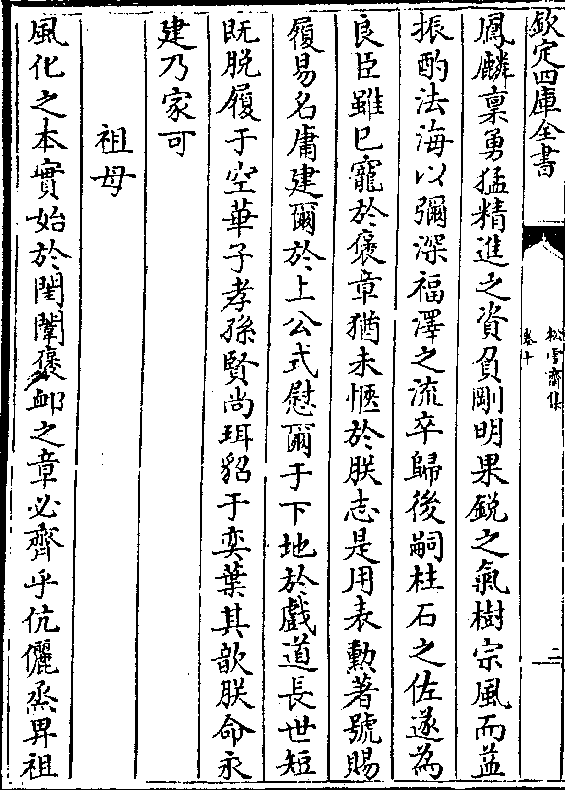 欽定四庫全書
松雪齋集
卷十
二
鳳麟禀勇猛精進之資負剛明果鋭之氣樹宗風而益
振酌法海以彌深福澤之流卒歸後嗣柱石之佐遂為
良臣雖已寵於褒章猶未愜於朕志是用表勲著號賜
履易名庸建爾於上公式慰爾于下地於戲道長世短
既脱履于空華子孝孫賢尚珥貂于奕葉其歆朕命永
建乃家可
祖母
風化之本實始於閨闈褒䘏之章必齊乎伉儷烝畀祖